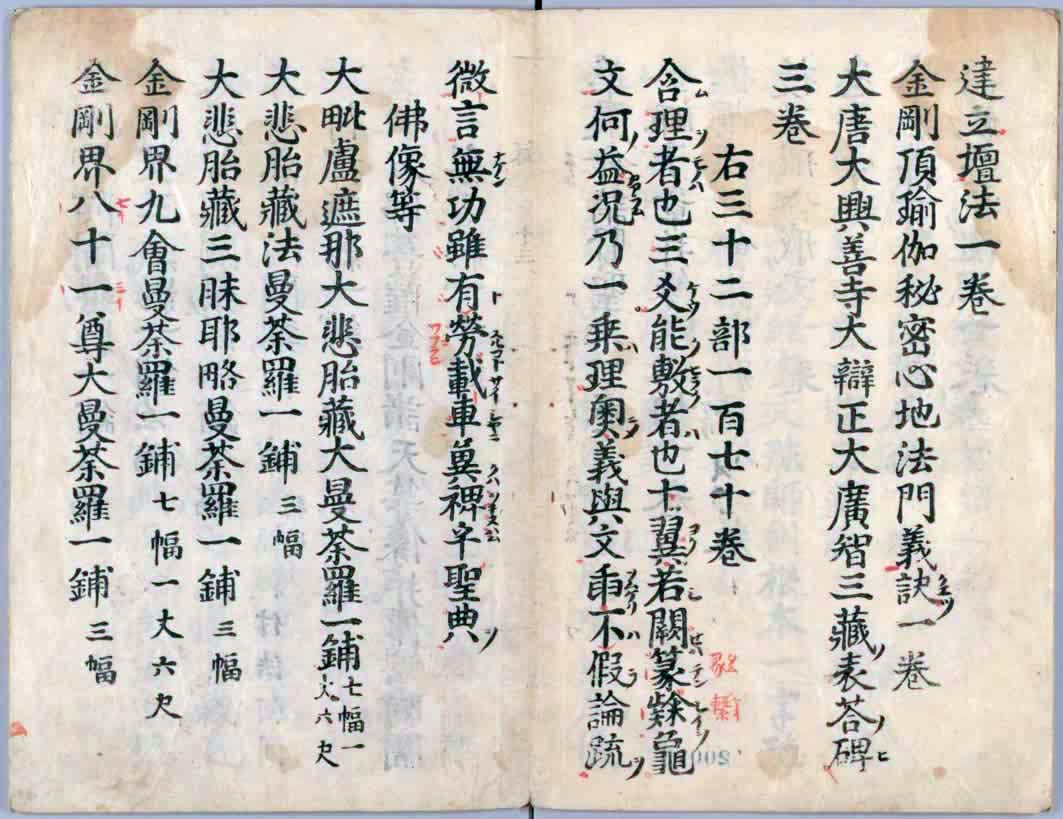 建立壇法一卷
金剛頂瑜伽秘密心地法門義訣一卷
大唐大興善寺大辯正大廣智三藏表荅碑
三卷
右三十二部一百七十卷
含理者也三爻能敷者也十翼若闕篆繇龜
文何益况乃一乘理奧義與文乖不假論疏
微言無功雖有勞載車冀裨乎聖典
佛像等
大毗盧遮那大悲胎藏大曼荼羅一鋪七幅一丈六尺
大悲胎藏法曼荼羅一鋪三幅
大悲胎藏三昧耶略曼荼羅一鋪三幅
金剛界九會曼荼羅一鋪七幅一丈六尺
金剛界八十一尊大曼荼羅一鋪三幅